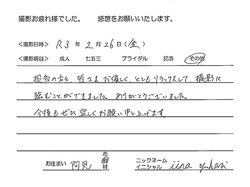 撮影お疲れ様でした。 感想をお願いいたします。
撮影日時 R3年2月26日(金)
撮影項目 成人 七五三 ブライダル 記念 その他
担当の方も、皆さまお優しく、とてもリラックスして、撮影に
臨むことができました。ありがとうございました。
今後もぜひ宜しくお願い申し上げます。
お住まい 阿見 市 町 村 ニックネーム イニシャル iina yukari